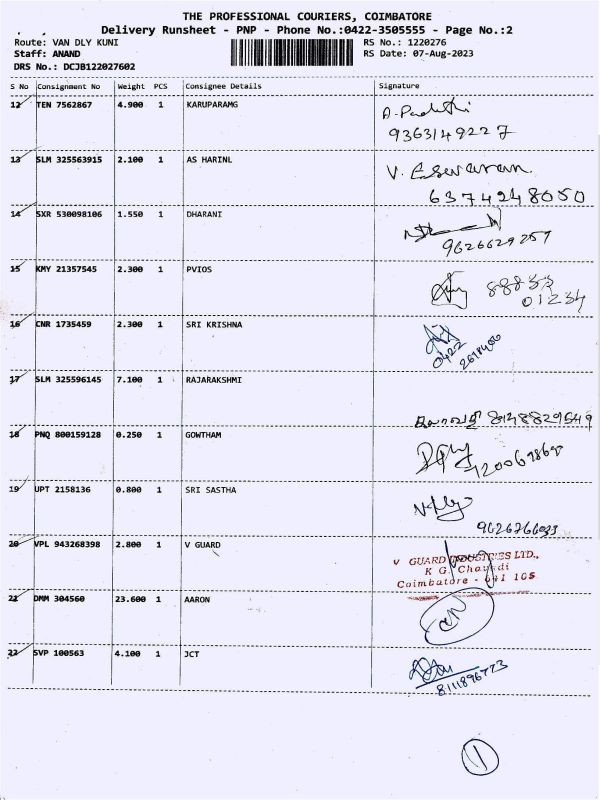 THE PROFESSIONAL COURIERS, COIMBATORE
Delivery Runsheet - PNP - Phone No.:0422-3505555 - Page No.:2
Route: VAN DLY KUNI RS No.: 1220276
Staff: ANAND RS Date: 07-Aug-2023
DRS No.: DCJB122027602
S No Consignment No Weight PCS Consignee Details Signature
12 TEN 7562867 4.900 1 KARUPARAMG
9363149227
13 SLM 325563915 2.100 1 AS HARINL
V. Eswaran
6374248050
14 SXR 530098106 1.550 1 DHARANI
9626629257
15 KMY 21357545 2.300 1 PVIOS
01234
16 CNR 1735459 2.300 1 SRI KRISHNA
0422
2618406
17 SLM 325596145 7.100 1 RAJARAKSHMI
8148829549
18 PNQ 800159128 0.250 1 GOWTHAM
19 UPT 2158136 0.800 1 SRI SASTHA
20 VPL 943268398 2.800 1 V GUARD
V GUARD INDUSTRIES LTD.,
K G Chavadi
Coimbatore - 641 105
21 DMM 304560 23.600 1 AARON
22 SVP 100563 4.100 1 JCT
8111896773
1